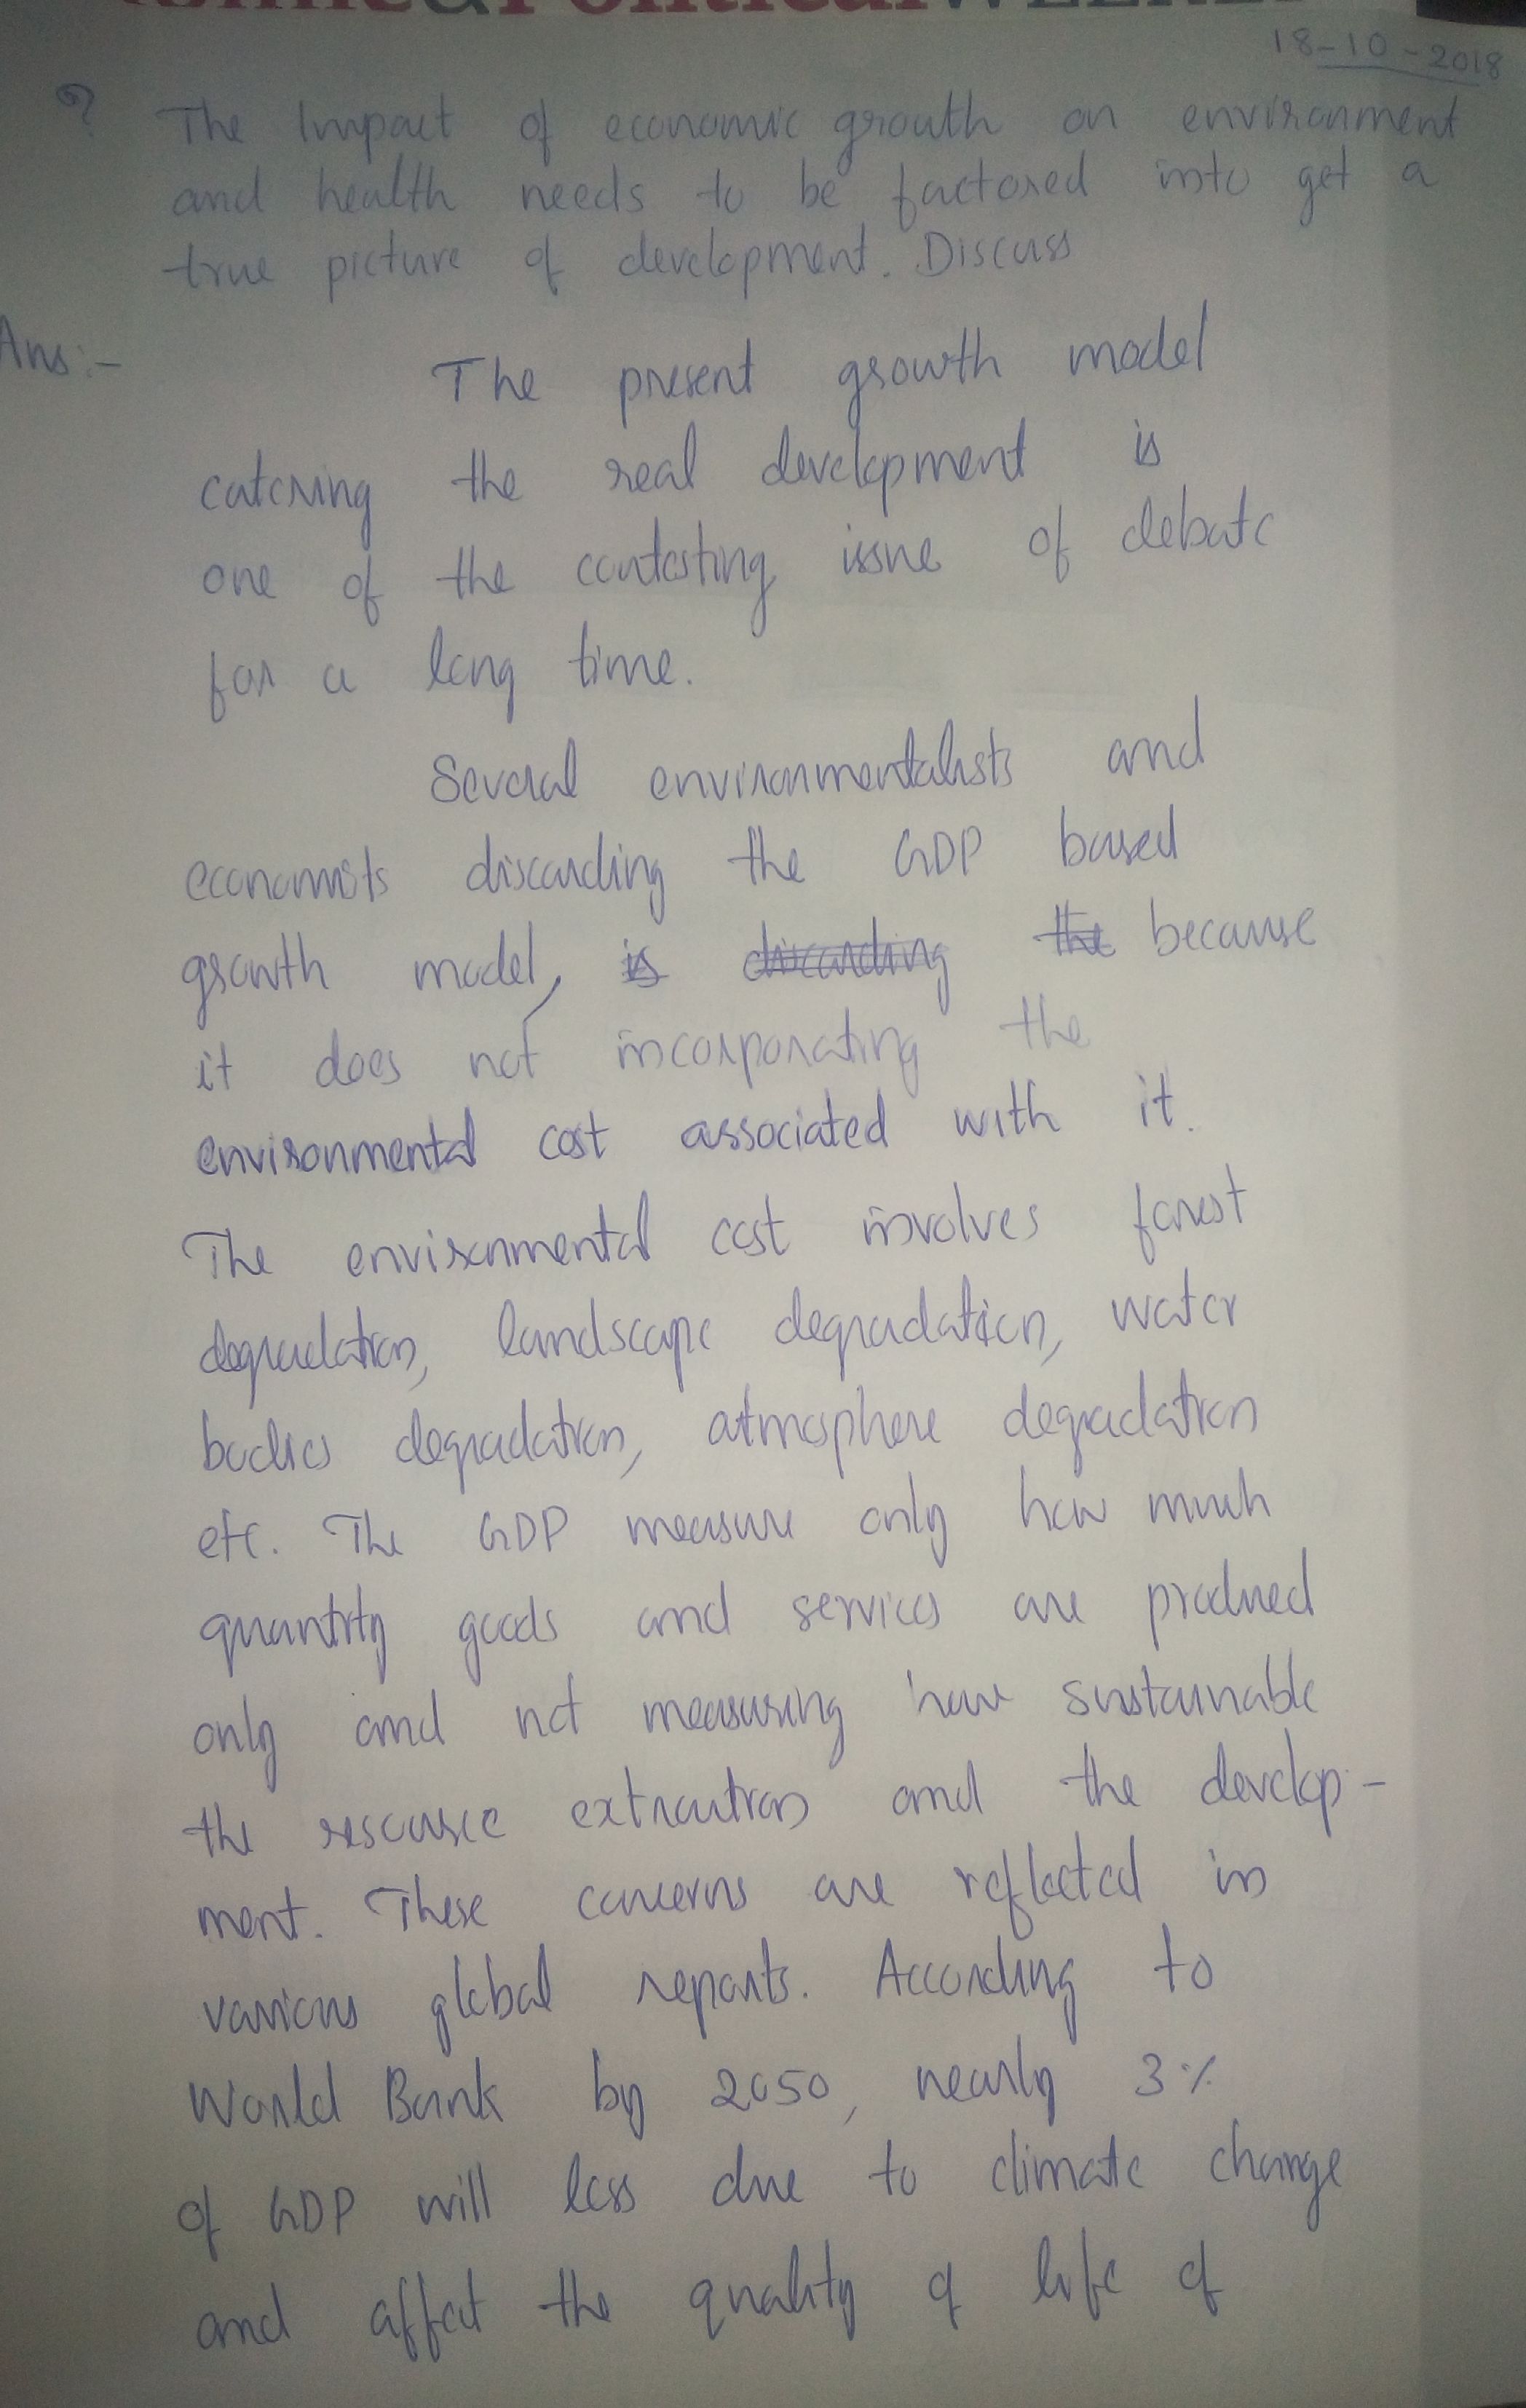 &PoliticalWEEKLY
18-10-2018
? The Impact of economic growth on environment
and health needs to be factored into get a
true picture of development. Discuss
Ans:- The present growth model
catering the real development is
one of the contesting issue of debate
for a long time.
Several environmentalists and
economists discarding the GDP based
growth model, is discarding the because
it does not incorporating the
environmental cost associated with it.
The environmental cost involves forest
degradation, landscape degradation, water
bodies degradation, atmosphere degradation
etc. The GDP measure only how much
quantity goods and services are produced
only and not measuring how sustainable
the resource extraction and the develop-
ment. These concerns are reflected in
various global reports. According to
World Bank by 2050, nearly 3%
of GDP will less due to climate change
and affect the quality of life of